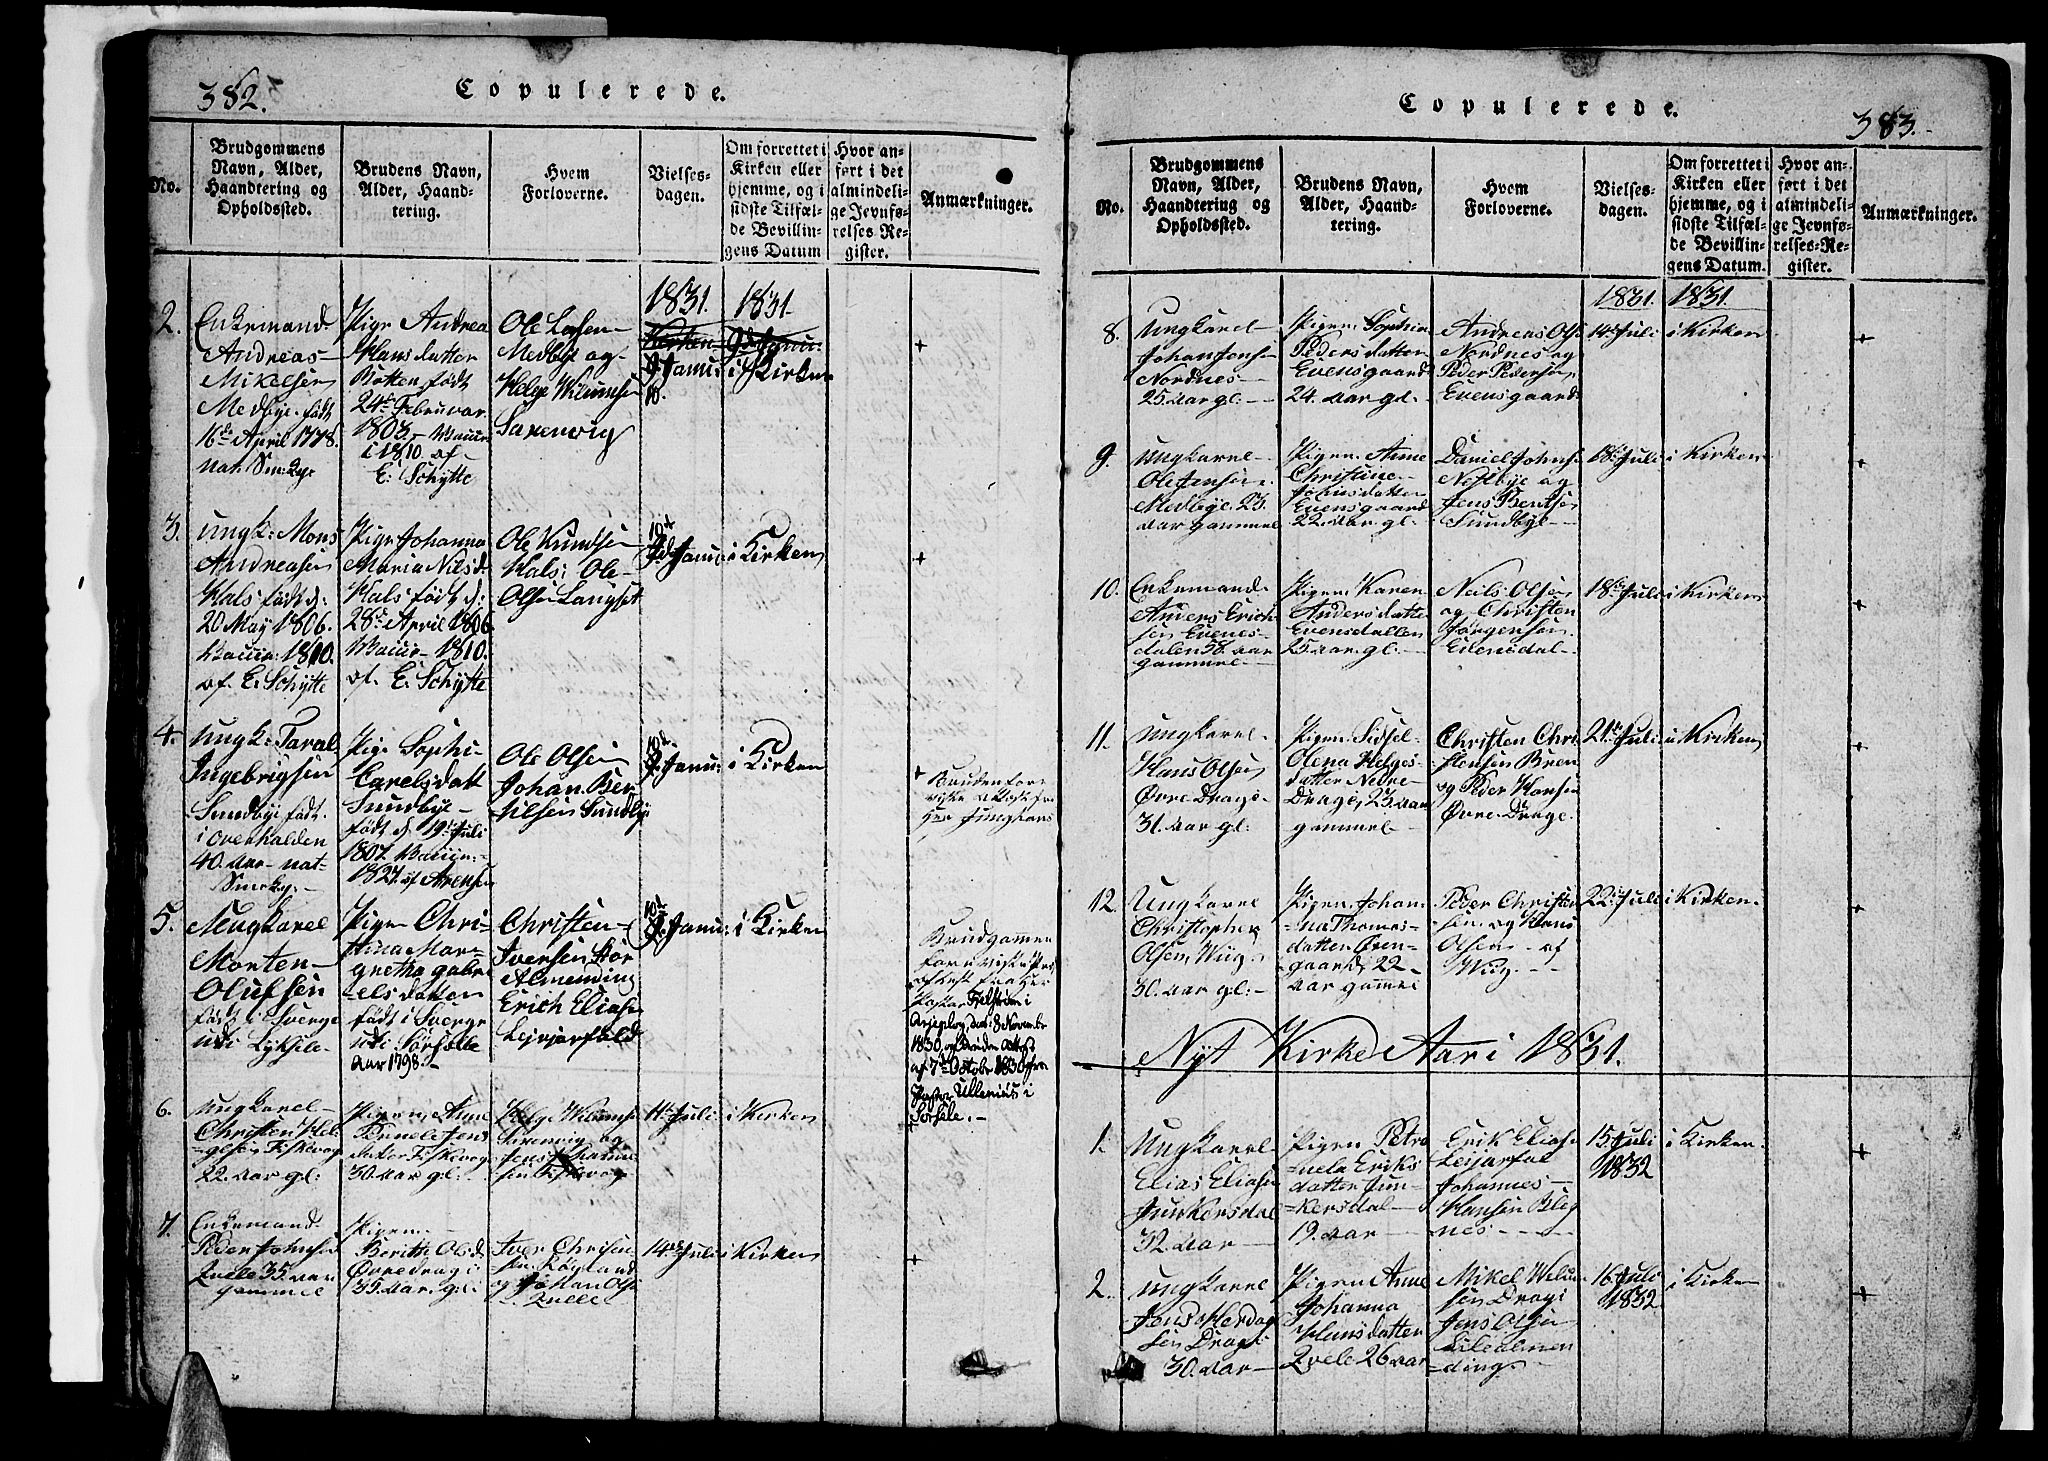 382.
Copulerede.
No.
Brudgommens
Navn, Alder,
Haandtering og
Opholdssted.
Brudens Navn,
Alder, Haand-
tering.
Hvem
Forloverne.
Vielses-
dagen.
Om forrettet i
Kirken eller
hjemme, og i
sidste Tilfæl-
de Bevillin-
gens Datum
Hvor an-
ført i det
almindeli-
ge Jevnfø-
relses-Re-
gister.
Anmærkninger.
1831. 1831.
2.
Enkemand
Andreas
Mikelsen
Medbye født
16de April 1778.
nat.
Pige Andrea
Hansdatter
Botten født
24de Februar
1803.
i 1810. af
E. Schytte
Ole
Medbye og
Helge Wilumsen
Saxenvig
Janu:
i Kirken
+
3.
Ungk: Mons
Andreasen
Hals født d:
20 May 1806.
Vaccin: 1810.
af E: Schytte
Pige Johanna
Maria Nilsd
Hals født d:
28de April 1806
1810.
af E. Schytte
Ole Kundsen
Hals: Ole
Olsen Langset
Janu:
i Kirken
+
4.
Ungk: Taral
Ingebrigsen
Sundbye født
i overhalden
40. aar nat
Pige Sophi-
Carelsdatt
Sundbye
født d. 19de Juli
1807. Vaccin:
1827. af Arensen
Ole Olsen
Johan Ber
tilsen Sundby
Janu:
i Kirken
+ Bruden for
5.
Ungkarel
Morten
Olufsen
født i Sverge
udi Lyksele
Pigen Chri-
stina Mar-
gretha gabri
elsdatter
født i Sverge
udi Sorsele
Aar 1798.
Christen
Iversen Stor
Almending
Erich Eliasen
Leirjarfald
Janu:
i Kirken
Brudgommen
Pastor
Arjeplog, den: 8 Novembr
1830, og Bruden Attest
af 7de Octobr 1830 fra
Pastor Ullenius i
Sorsele.
6.
Ungkarel
Christen Hel-
gesen Fiskevog
22. aar gl:
Pigen Anne
Pernele Jens
datter Fiskevog
30. aar gl:
Helge Wilumsen
Saxenvig og
Jens
sen Fiskevog
11te Juli
i Kirken
7.
Enkemand
Peder Johnsen
Qvele 35. aar
gammel
Pigen
Beritte Olsd
Øvredragi
35. aar. gl:
Iver Chrisen
sen Røgland
og Johan Olsen
Qvele
14de Juli
i Kirken
+
Copulerede.
383.
No.
Brudgommens
Navn, Alder,
Haandtering og
Opholdssted.
Brudens Navn,
Alder, Haand-
tering.
Hvem
Forloverne.
Vielses-
dagen.
Om forrettet i
Kirken eller
hjemme, og i
sidste Tilfæl-
de Bevillin-
gens Datum.
Hvor an-
ført i det
almindeli-
ge Jevnfø-
relses-Re-
gister.
Anmærkninger.
1831. 1831.
8.
Ungkarel
Johan Jensen
Nordnes
25. aar gl:
Pigen Sophia
Pedersdatter
Evensgaard
24. aar gl:
Andreas Olsen
Nordnes og
Peder Pedersen
Evensgaard
14de Juli
i Kirken
+
9.
Ungkarel
Ole Jensen
Medbye 23.
aar gammel
Pigen Anne
Christine
Johnsdatter
Evensgaard
22. aar. gl:
Daniel Johnsen
Nestbye og
Jens Bentsen
Sundbye
18de Juli
i Kirken
+
10.
Enkemand
Anders Erich-
sen Evenes-
dalen 58. aar
gammel
Pigen Karen
Andersdatter
Evensdallen
25. aar. gl:
Neils Olsen
og Christen
Jørgensen
Evensdal
18de Juli
i Kirken
+
11.
Ungkarel
Hans Olsen
Øvre Drage
31. aar gl:
Pigen Sidsel
Olena Helges-
datter Nedre
Drage, 23. aar
gammel
Christen Chri
stensen Bren
og Peder Hansen
Øvre Drage
21de Juli
i Kirken
+
12.
Ungkarel
Christopher
Olsen, Wiig
30. aar gl:
Pigen Johan-
na Thomes-
datter Øven-
gaard 22
aar gammel
Peder Christen
sen og Hans
Olsen af
Wiig.
22de Juli
i Kirken.
+
Nyt Kirke Aar i 1831.
1.
Ungkarel
Elias Eliasen
Junkersdal
32. aar
Pigen Petro
nela Eriks
datter Jun-
kersdal
19. aar
Erik Eliasen
Leijarfal
Johannes
Hansen Bleg
nes
15. Juli
1832
i Kirken
+
2.
Ungkarel
Jens Herdag
sen Dragi
30. aar
Pigen Anne
Johanna
Hansdatter
Qvele 26 aar
Mikel Wilum
sen Dragi
Jens Olsen
Lilealmen
ding.
16 Juli
1832
i Kirken
+